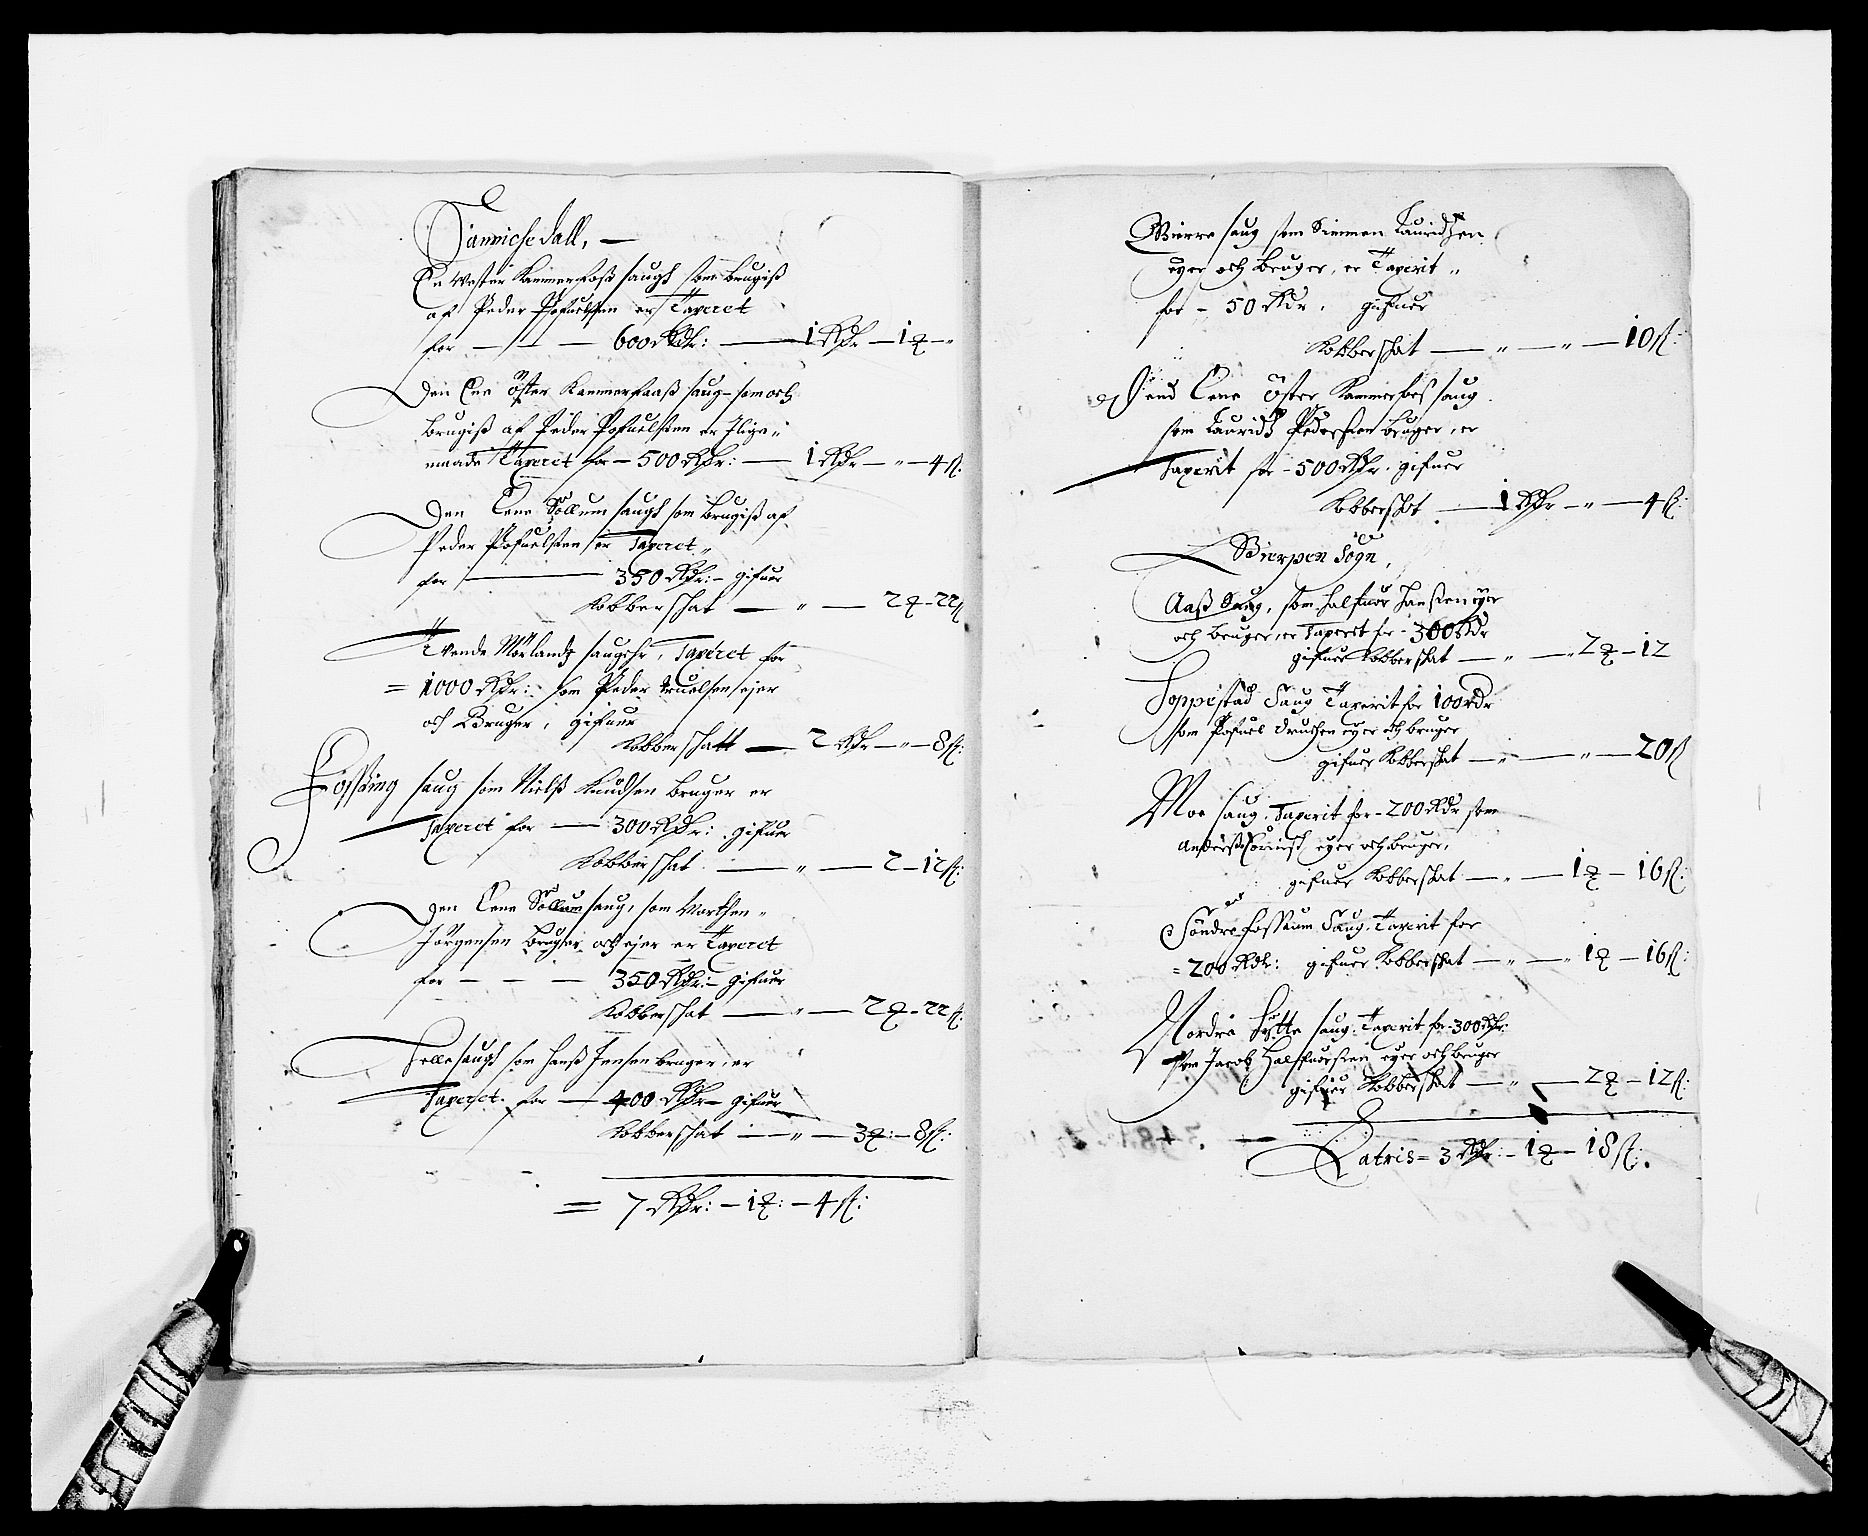 Sannichedall, —
En Wester Kammerfoss saugh som brugiß
af Peder Pofuelsen er Taxeret
for — — — 600 Rdr: — 1 Rdr — 1 ꝗ — „
Den Ene öster Kammerfoaß saug som och
brugiß af Peder Pofuelsen er Lige
maade Taxeret for — 500 Rdr: — 1 Rdr — „ — 4 ß:
Den Ene Söllum saugh som brugiß af
Peder Pofuelsen er Taxeret
for — 350 Rdr: — gifuer
Kobberschat — „ — 2 ꝗ - 22 ß
Tvende Mörlandz saugehr, Taxeret for
= 1000 Rdr: som Peder Truelsen ejer
och Bruger, gifuer
Kobberschatt — 2 Rdr — „ — 8 ß:
Fossing saug som Nielß Knudsen bruger er
Taxeret for — 300 Rdr: gifuer
Kobberschat — „ — 2 — 12 ß:
Den Ene Söllum saug, som Morthen
Jörgensen bruger och ejer er Taxeret
for — — — 350 Rdr: — gifuer
Kobberschat — „ — 2 ꝗ - 22 ß:
Felle saugh som Hanß Jensen bruger, er
Taxeret for — 400 Rdr — gifuer
Kobberschat — „ — 3 ꝗ: — 8 ß:
= 7 Rdr: — 1 ꝗ: — 4 ß:
Bierre saug som Simmen Lauridzen
eyer och bruger, er Taxerit „
for - 50 Rdr. gifuer
Kobberschat — „ — „ — 10 ß:
Dend Ene öster Kammerfos saug
som Lauridz Pederssen bruger, er
Taxerit for - 500 Rdr. gifuer
Kobberschat — 1 Rdr — „ — 4 ß:
Bierpen Sogn,
Aaß Saug, som Halfuor Hanssen eyer
och bruger, er Taxerit for - 300 Rdr
gifuer Kobberschat — „ — „ 2 ꝗ — 12
Soppestad Saug Taxerit for 100 rdr
som Pofuel Knudsen eyer och bruger
gifuer Kobberschat — „ — „ — 20 ß
Moe saug, Taxerit for - 200 Rdr som
Anderß eyer och bruger,
gifuer Kobberschat — „ — 1 ꝗ — 16 ß:
Söndre Fossum Saug, Taxerit for
= 200 Rdr: gifuer Kobberschat — „ — „ 1 ꝗ — 16 ß:
Nordre Hytte saug Taxerit for - 300 Rdr:
som Jacob Halfuorsen eyer och bruger
gifuer Kobberschat — „ — 2 ꝗ — 12 ß:
Latris = 3 Rdr: — 1 ꝗ — 18 ß: